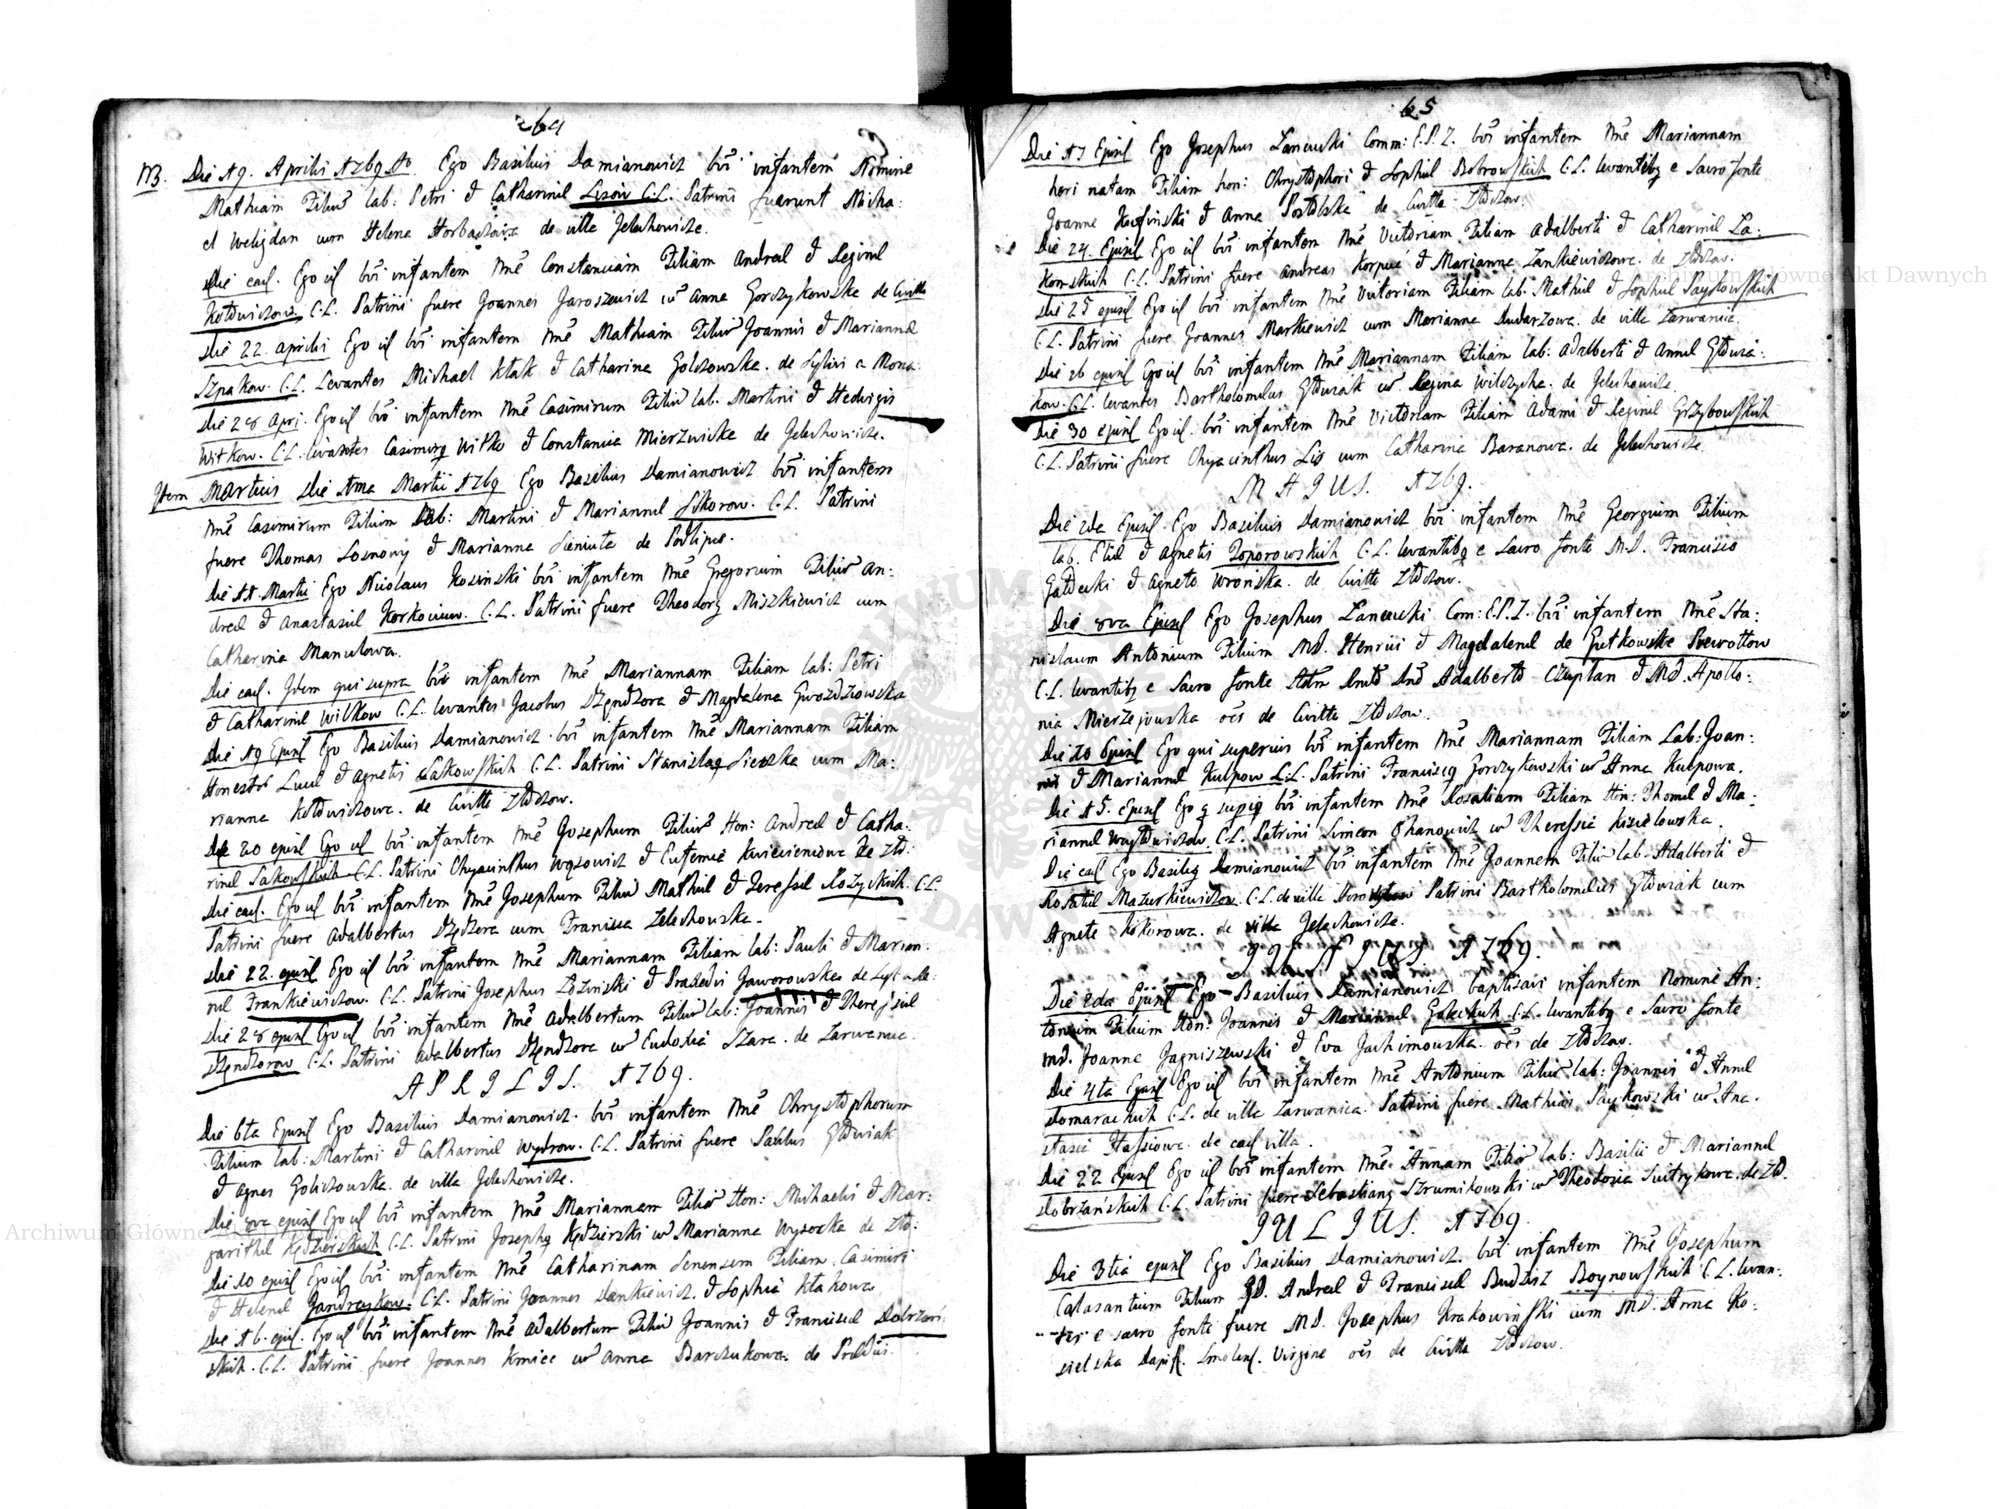 64
NB. Die 19. Aprilis 1769 Ao. Ego Basilius Damianowicz bāi infantem Nomine
Mathiam Filiū lab: Petri & Catharinæ Lisow C.L. Patrini fuerunt Micha:
el Weligdan cum Helena de villa Jelechowicze.
Die ead. Ego id bāi infantem Nnē Constantiam Filiam Andreæ & Reginæ
Kotowiczow C.L. Patrini fuere Joannes Jaroszewicz cū Anna Gorczykowska de Civitte
Die 22. aprilis Ego id bāi infantem Nnē Mathiam Filiū Joannis & Mariannæ
Szpakow. C.L. Levantes Michael Kłak & Catharina Golczowska. de
Die 28 Apri. Ego id bāi infantem Nnē Casimirum Filiū lab. Martini & Hedvigis
Witkow. C.L. levantes Casimirg Witko & Constancia Mierzwicka de Jelechowicze.
Item Martius Die 1ma Martii 1769 Ego Basilius Damianowicz bāi infantem
Nnē Casimirum Filium lab: Martini & Mariannæ Sikorow. C.L. Patrini
fuere Thomas Sosnowy & Marianna Sieniuta de Podlipie.
Die 11. Martii Ego Nicolaus Kosinski bāi infantem Nnē Gregorium Filiū An:
dreæ & Anastasiæ Korkoniuw. C.L. Patrini fuere Theodorg Miszkiewicz cum
Catharina Manulowa.
Die ead. Idem qui supra bāi infantem Nnē Mariannam Filiam lab: Petri
& Catharinæ Wilkow C.L. levantes Jacobus Dzędzora & Magdalena Gwozdzowska
Die 19 Ejusd Ego Basilius Damianowicz. bāi infantem Nnē Mariannam Filiam
Honestor Lucæ & agnetis Sakowskich C.L. Patrini Stanislag Sieczka cum Ma:
rianna Kotowiczowa. de Civitte Złoczow.
Die 20 ejusd Ego id bāi infantem Nnē Josephum Filiū Hon: Andreæ & Catha:
rinæ Sakowskich C.L. Patrini Chyacinthus Wąsowicz & Eufemia Kwiecieniowa de Zło:
Die ead. Ego id bāi infantem Nnē Josephum Filiū Mathiæ & Teressæ Rozyckich. C.L.
Patrini fuere Adalbertus Dzędzora cum Francisca Zelechowska.
Die 22. ejusd Ego id bāi infantem Nnē Mariannam Filiam lab: Pauli & Marian:
næ Frankiewiczow. C.L. Patrini Josephus Łozinski & Praxedis Jaworowska
Die 28 ejusd Ego id bāi infantem Nnē Adalbertum Filiū lab: Joannis & Theressiæ
Dzędzorow C.L. Patrini Adalbertus Dzędzora cū Eudoxia Szara. de Zarwanica.
APRILIS. 1769.
Die 6ta Ejusd Ego Basilius Damianowicz. bāi infantem Nnē Chrystophorum
Filium lab: Martini & Catharinæ Wydrow. C.L. Patrini fuere Paulus Głowiak
& Agnes Goliczowska. de villa Jelechowicze.
Die 8va ejusd Ego id bāi infantem Nnē Mariannam Filiā Hon: Michaelis & Mar:
garithæ Kędzierskich C.L. Patrini Josephg Kędzierski cū Marianna Wysocka de Zło:
Die 10 ejusd Ego id bāi infantem Nnē Catharinam Senensem Filiam Casimiri
& Helenæ Jandraykow. C.L. Patrini Joannes Dankiewicz. & Sophia Kłakowa
Die 16. ejus. Ego id bāi infantem Nnē Adalbertum Filiū Joannis & Franciscæ Dobrzań
skich. C.L. Patrini fuere Joannes Kmiec cū Anna Barczukowa. de
65
Die 17 Ejusd Ego Josephus Zancwski Comm: E.P.Z. bāi infantem Nnē Mariannam
heri natam Filiam hon: Chrystophori & Sophiæ Bobrowskich C.L. levantibg e Sacro fonte
Joanne & Anna Postolska de Civitte Złoczow.
Die 24. Ejusd Ego id bāi infantem Nnē Victoriam Filiam Adalberti & Catharinæ Za:
komskich C.L. Patrini fuere Andreas Korpuc & Marianna Zankiewiczowa. de Złoczow.
Die 25 ejusd Ego id bāi infantem Nnē Victoriam Filiam lab: Mathiæ & Sophiæ Paykowskich
C.L. Patrini fuere Joannes Markiewicz cum Marianna Dudarzowa. de villa Zarwanica.
Die 26 ejusd Ego id bāi infantem Nnē Mariannam Filiam lab: Adalberti & Annæ Głowia:
kow. C.L. levantes Bartholomeus Głowiak cū Regina Wilczycka. de Jelechowicze.
Die 30 ejusd Ego id. bāi infantem Nnē Victoriam Filiam Adami & Reginæ Grzybowskich
C.L. Patrini fuere Chyacinthus Lis cum Catharina Baranowa. de Jelechowicze
MAJUS. 1769.
Die 2da Ejusd. Ego Basilius Damianowicz bāi infantem Nnē Georgium Filium
lab. Eliæ & Agnetis Toporowskich C.L. levantibg e Sacro fonte M.D. Francisco
Gałecki & Agneta Wronska. de Civitte Złoczow.
Die 8va Ejusd Ego Josephus Zancwski Com: E.P.Z. bāi infantem Nnē Sta:
nislaum Antonium Filium M.D. Henrici & Magdalenæ de Gutkowska Prewottow
C.L. levantibg e Sacro fonte Adalberto Czaplan & M.D. Apollo:
nia Mierzejowska oēs de Civitte Złoczow.
Die 10 Ejusd Ego qui superius bāi infantem Nnē Mariannam Filiam Lab: Joan:
nis & Mariannæ Kulpow C.L. Patrini Franciscg Gorczykowski cū Anna Kulpowa.
Die 15. Ejusd Ego q supig bāi infantem Nnē Rosaliam Filiam Hon: Thomæ & Ma:
riannæ Woytowiczow C.L. Patrini Simeon Ohanowicz cū Theressia Kisielowska.
Die ead Ego Basilig Damianowicz bāi infantem Nnē Joannem Filiū lab. Adalberti &
Rosaliæ Mazurkiewiczow C.L. de villa Patrini Bartholomeus Głowiak cum
Agneta Sikorowa. de villa Jelechowicze.
1769.
Die 2da Ejusd Ego Basilius Damianowicz baptisavi infantem Nomine An:
tonium Filium Hon: Joannis & Mariannæ Goleckich C.L. levantibg e Sacro fonte
M.D. Joanne Jagniszewski & Eva Jachimowska. oēs de Złoczow.
Die 4ta Ejusd Ego id bāi infantem Nnē Antonium Filiū lab: Joannis & Annæ
Domarackich C.L. de villa Zarwanica. Patrini fuere Mathias Paykowski cū Ana.
stasia Hassiowa. de ead villa.
Die 22 Ejusd Ego id bāi infantem Nnē. Annam Filiā lab: Basilii & Mariannæ
Dobrzańskich C.L. Patrini fuere Sebastiang Szrumikowski cū Theodosia Switrykowa. de Zło.
JULIUS. 1769.
Die 3tia ejusd Ego Basilius Damianowicz. bāi infantem Nnē Josephum
Calasantium Filium M.D. Andreæ & Franciscæ Budzisz Boynowskich C.L. levan:
tes e sacro fonte fuere M.D. Josephus Krakowiński cum M.D. Anna Ko:
sielska Dapif. Smolens. Virgine oēs de Civitte Złoczow.
Archiwum Główne Akt Dawnych